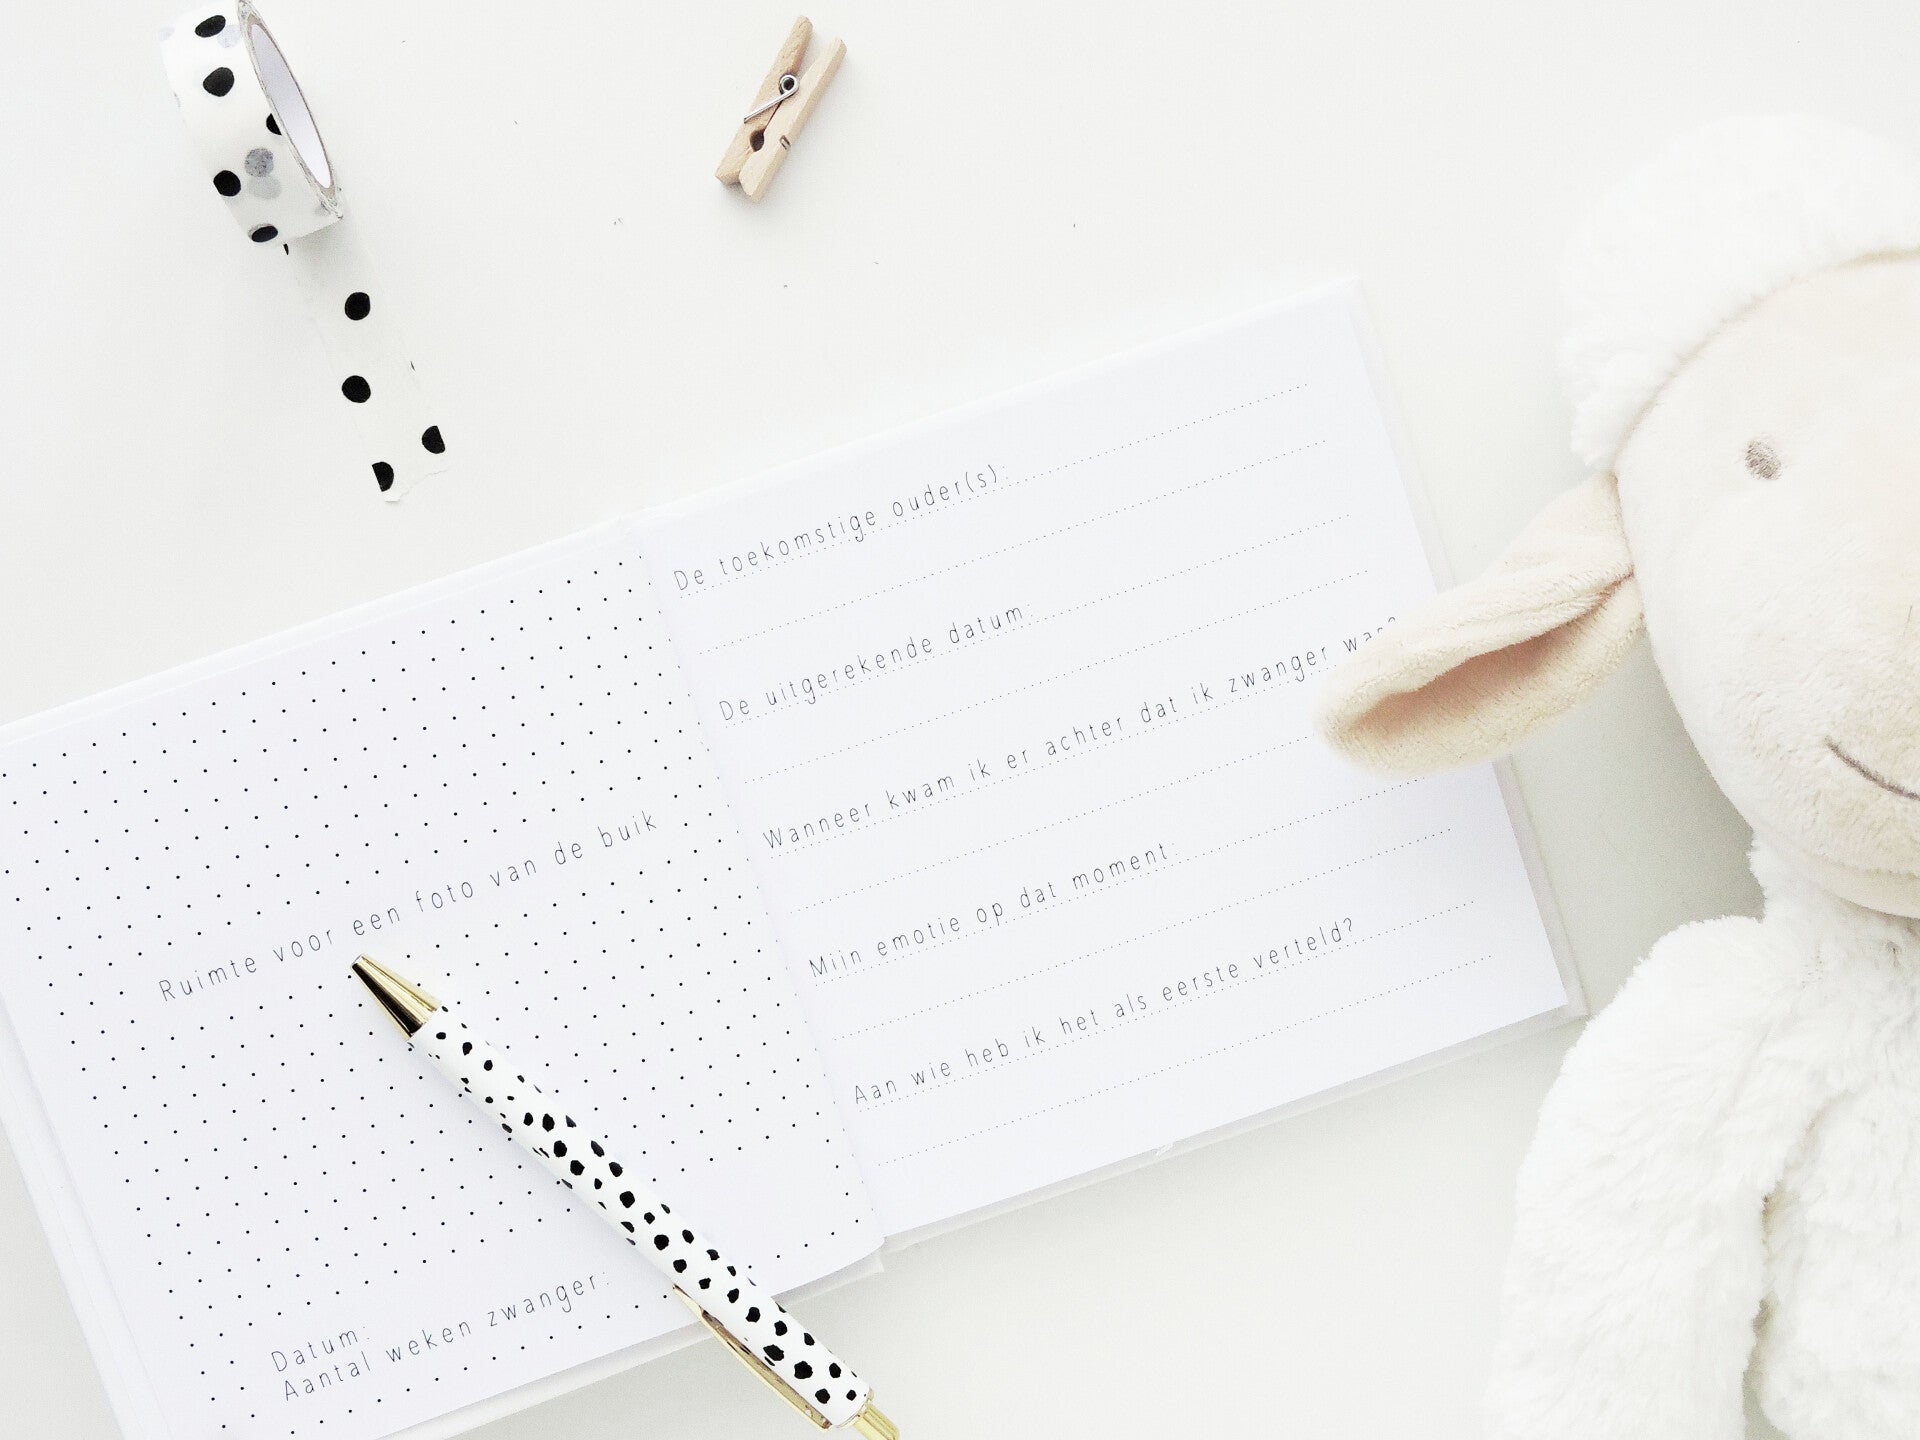 Ruimte voor een foto van de buik
Datum:
Aantal weken zwanger:
De toekomstige ouder(s):
De uitgerekende datum:
Wanneer kwam ik er achter dat ik zwanger was?
Mijn emotie op dat moment:
Aan wie heb ik het als eerste verteld?